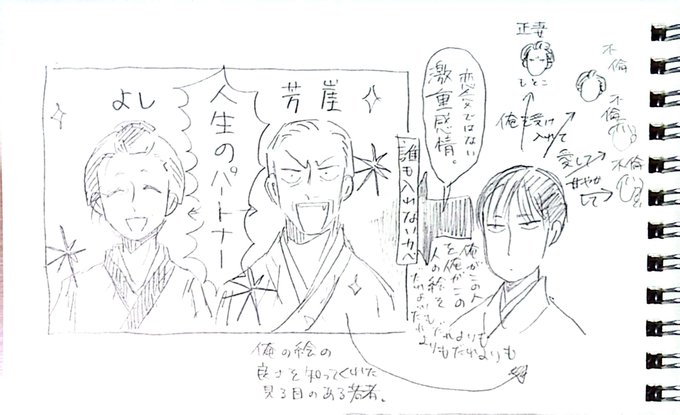 正妻
もとこ
不倫
不倫
不倫
俺を受け
入れて
愛して
甘やか
して
恋愛ではない
激重感情。
よし
人生のパートナー
芳崖
誰も入れないカベ
俺がこの人
を俺がこの
人の絵を
だれよりも
よりもだれよりも
俺の絵の
良さを知ってくれた
見る目のある若者。